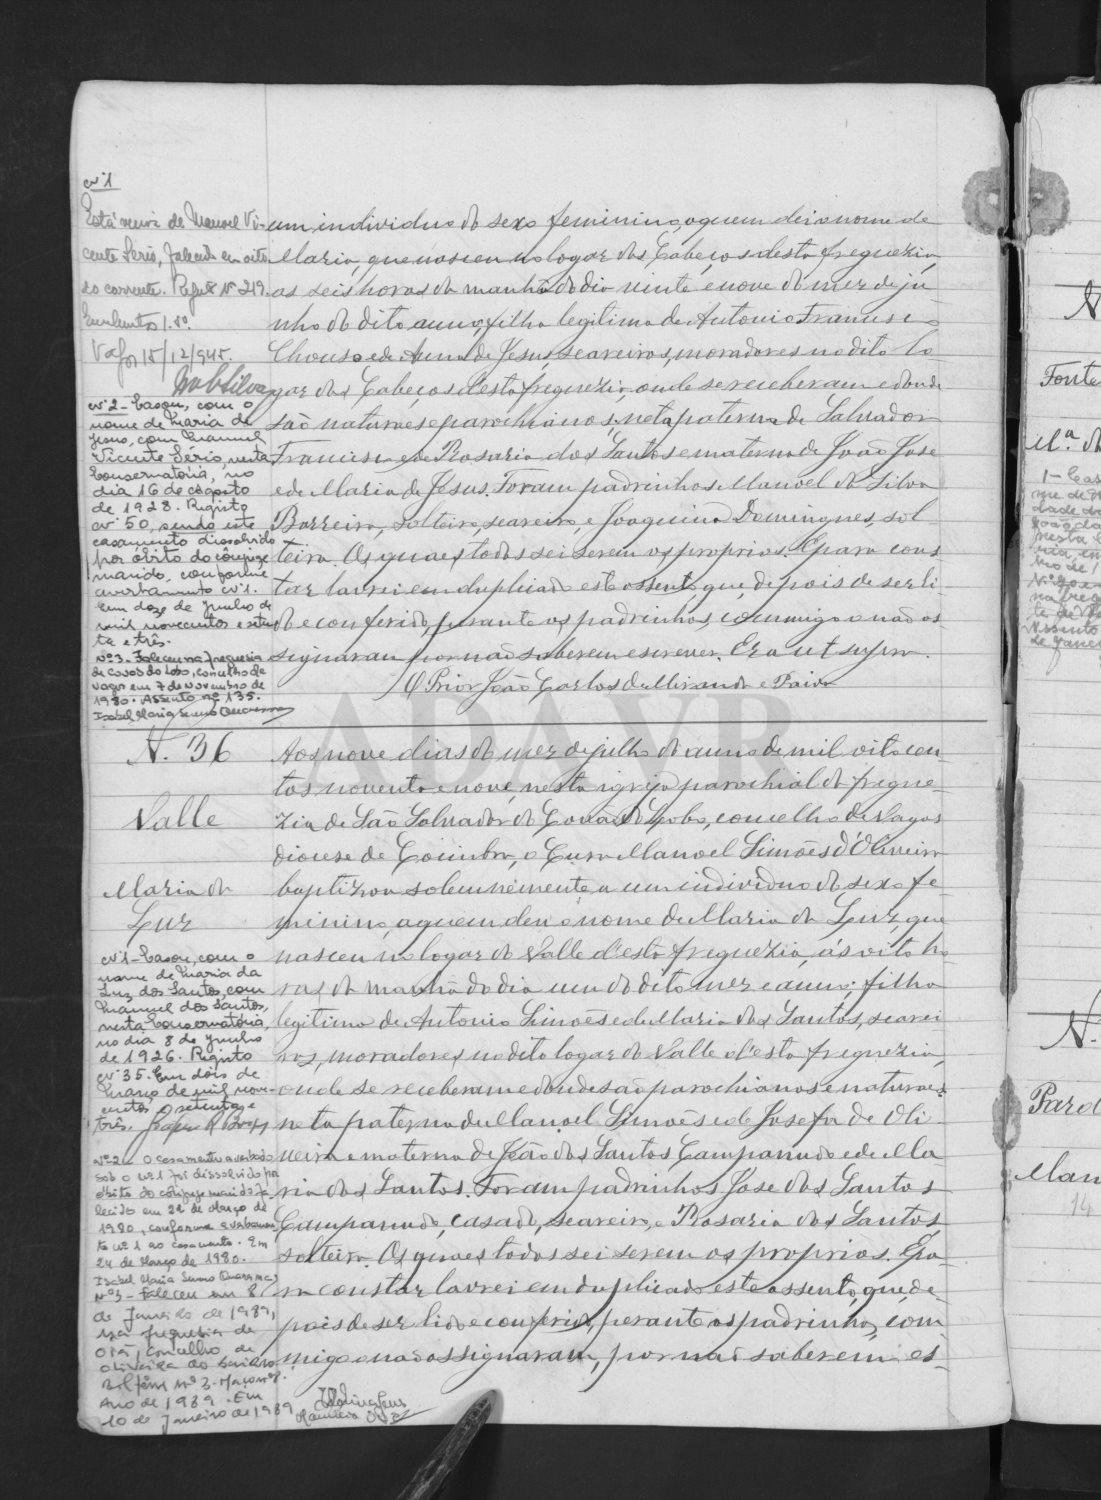 nº 1
Está viuva de Manuel Vi-
cente Serio, falecido em oito
do corrente. Reg. nº 219.
Vagos 15/12/945.
nº 2 - Casou, com o
nome de Maria de
Jesus, com Manuel
Vicente Sério, nesta
Conservatória, no
dia 16 de agosto
de 1928. Registo
nº 50, sendo este
casamento dissolvido
por óbito do cônjuge
marido, conforme
averbamento nº 1.
Em doze de Junho de
mil novecentos e seten-
ta e três.
Nº 3 - Faleceu na freguesia
de Covão do Lobo, concelho de
Vagos em 7 de Novembro de
1980. Assento nº 135.
Isabel Maria
um individuo do sexo feminino, a quem dei o nome de
Maria, que nasceu no logar dos Cabeços desta freguezia,
as seis horas da manhã do dia vinte e nove do mez de ju-
nho do dito anno, filha legitima de Antonio Francisco
Chouso e de Anna de Jesus, seareiros, moradores no dito lo-
gar dos Cabeços desta freguezia, onde se receberam e donde
são naturaes e parochianos; neta paterna de Salvador
Francisco e de Rosaria dos Santos e materna de João José
e de Maria de Jesus. Foram padrinhos Manoel da Silva
Barreiro, solteiro, seareiro, e Joaquina Domingues, sol
teira. Os quaes todos sei serem os proprios. E para cons
tar lavrei em duplicado este assento, que, depois de ser li-
do e conferido, perante os padrinhos, commigo o não as-
signaram por não saberem escrever. Era ut supra.
O Prior João Carlos de Miranda e Faiva
ADAVR
N. 36
Valle
Maria da
Luz
nº 1 - Casou, com o
nome de Maria da
Luz dos Santos, com
Manuel dos Santos,
nesta Conservatória,
no dia 8 de Junho
de 1926. Registo
nº 35. Em dois de
Março de mil nove-
centos e setenta e
três.
Nº 2 - O casamento averbado
sob o nº 1 foi dissolvido por
óbito do cônjuge marido fa
lecido em 22 de Março de
1980, conforme averbamen
to nº 1 ao casamento. Em
24 de Março de 1980.
Isabel Maria
Nº 3 - Faleceu em 8
de Janeiro de 1989,
na freguesia de
Oiã, concelho de
Oliveira do Bairro.
Boletim nº 3. Maço nº 1.
Ano de 1989. Em
10 de Janeiro de 1989
Aos nove dias do mez de julho do anno de mil oitocen-
tos noventa e nove, nesta igreja parochial da fregue-
zia de São Salvador do Covão do Lobo, concelho de Vagos
diocese de Coimbra, o Cura Manoel Simões d'Oliveira
baptizou solemnemente, a um individuo do sexo fe-
minino, a quem deu o nome de Maria da Luz, que
nasceu no logar do Valle d'esta freguezia, ás oito ho
ras da manhã do dia um do dito mez e anno; filha
legitima de Antonio Simões e de Maria dos Santos, searei
ros, moradores no dito logar do Valle d'esta freguezia,
onde se receberam e donde são parochianos e naturaes;
neta paterna de Manoel Simões e de Josefa de Oli-
veira e materna de João dos Santos Campanudo e de Ma
ria dos Santos. Foram padrinhos José dos Santos
Campanudo, casado, seareiro, e Rosaria dos Santos,
solteira. Os quaes todos sei serem os proprios. E pa-
ra constar lavrei em duplicado este assento, que, de-
pois de ser lido e conferido, perante os padrinhos, com
migo o não assignaram, por não saberem es-
N
Fonte
M.ª d
N.
Pard
Man
14